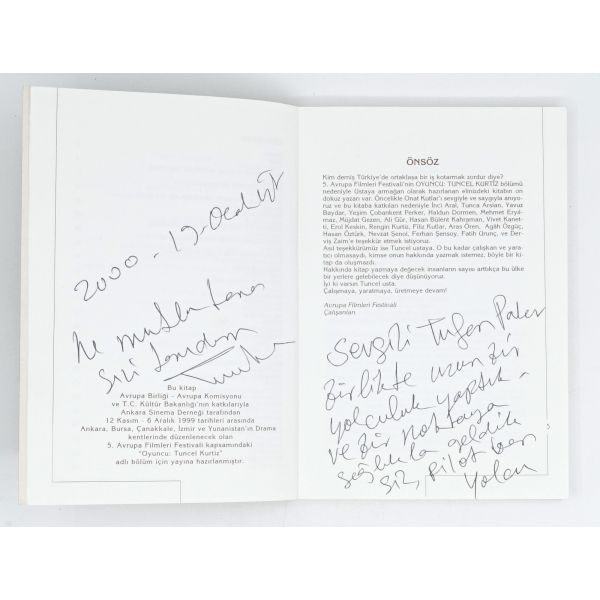 2000 - 19 -
Ne mutlu bana
Sizi tanıdım
Bu kitap
Avrupa Birliği - Avrupa Komisyonu
ve T.C. Kültür Bakanlığı'nın katkılarıyla
Ankara Sinema Derneği tarafından
12 Kasım - 6 Aralık 1999 tarihleri arasında
Ankara, Bursa, Çanakkale, İzmir ve Yunanistan'ın Drama
kentlerinde düzenlenecek olan
5. Avrupa Filmleri Festivali kapsamındaki
"Oyuncu: Tuncel Kurtiz"
adlı bölüm için yayına hazırlanmıştır.
ÖNSÖZ
Kim demiş Türkiye'de ortaklaşa bir iş kotarmak zordur diye?
5. Avrupa Filmleri Festivali'nin OYUNCU: TUNCEL KURTİZ bölümü
nedeniyle Ustaya armağan olarak hazırlanan elinizdeki kitabın on
dokuz yazarı var. Öncelikle Onat Kutlar'ı sevgiyle ve saygıyla anıyoruz
ve bu kitaba katkıları nedeniyle İnci Aral, Tunca Arslan, Yavuz
Baydar, Yeşim Çobankent Perker, Haldun Dormen, Mehmet Eryılmaz,
Müjdat Gezen, Ali Gür, Hasan Bülent Kahraman, Vivet Kanetti,
Erol Keskin, Rengin Kurtiz, Filiz Kutlar, Aras Ören, Agâh Özgüç,
Hasan Öztürk, Nevzat Şenol, Ferhan Şensoy, Fatih Urunç, ve Derviş
Zaim'e teşekkür etmek istiyoruz.
Asıl teşekkürümüz ise Tuncel ustaya. O bu kadar çalışkan ve yaratıcı
olmasaydı, kimse onun hakkında yazmak istemez, böyle bir kitap
da oluşmazdı.
Hakkında kitap yapmaya değecek insanların sayısı arttıkça bu ülke
bir yerlere gelebilecek diye düşünüyoruz.
İyi ki varsın Tuncel usta.
Çalışmaya, yaratmaya, üretmeye devam!
Avrupa Filmleri Festivali
Çalışanları
Sevgili
Birlikte uzun bir
yolculuk yaptık -
ve bir noktaya
sağlıkla geldik
siz, pilot ben
yolcu